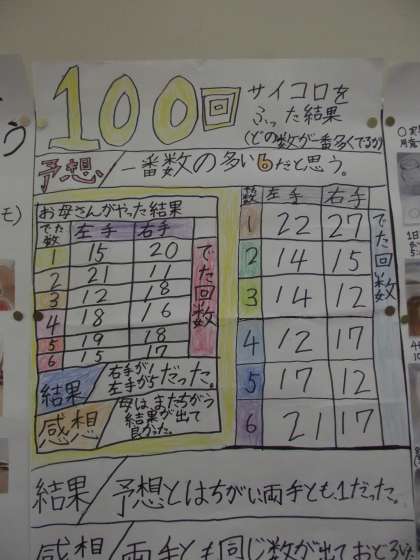 100回
サイコロを
ふった結果
(どの数が一番多くでるか)
予想 一番数の多い6だと思う。
お母さんがやった結果
でた数 左手 右手
1 15 20
2 21 11
3 12 18
4 18 16
5 19 18
6 15 17
でた回数
結果 右手が1
左手が5だった。
感想 母は、またちがう
結果が出て
良かった。
数 左手 右手
1 22 27
2 14 15
3 14 12
4 12 17
5 17 12
6 21 17
でた回数
結果 予想とはちがい両手とも、1だった。
感想 両手とも同じ数が出て